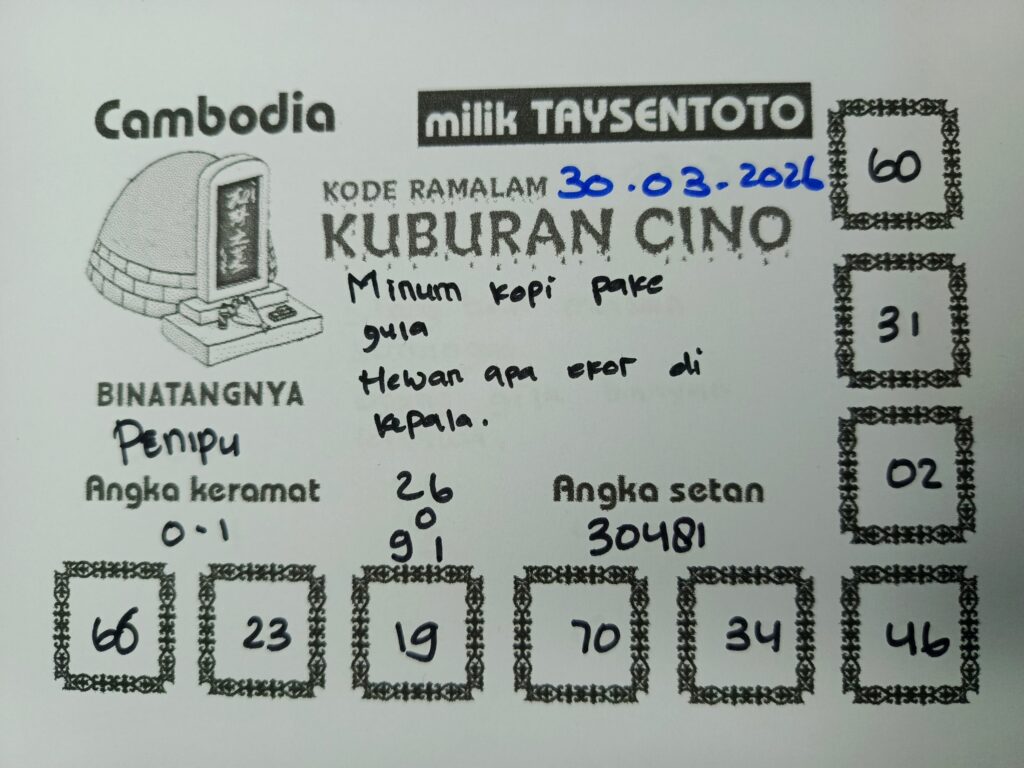 Cambodia
milik TAYSENTOTO
KODE RAMALAM 30.03.2026
KUBURAN CINO
Minum kopi pake
gula
Hewan apa ekor di
kepala.
BINATANGNYA
Penipu
Angka keramat
0-1
26
0
91
Angka setan
30481
60
31
02
66
23
19
70
34
46